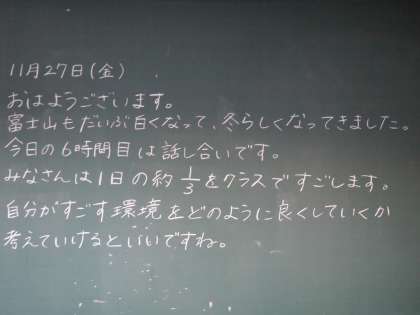 11月27日(金)
おはようございます。
富士山もだいぶ白くなって、冬らしくなってきました。
今日の6時間目は話し合いです。
みなさんは1日の約1/3をクラスですごします。
自分がすごす環境をどのように良くしていくか
考えていけるといいですね。